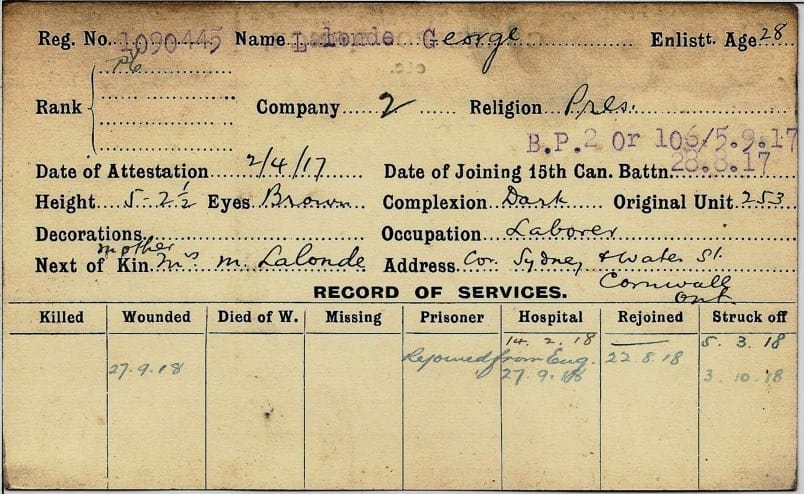 Reg. No. 1090445 Name Lalonde George Enlistt. Age 28
Pte
Rank Company 2 Religion Pres.
B.P.2 Or 106/5.9.17
Date of Attestation 2/4/17 Date of Joining 15th Can. Battn. 28.8.17
Height 5-2½ Eyes Brown Complexion Dark Original Unit 253
Decorations Occupation Laborer
mother
Next of Kin Mrs M. Lalonde Address Cor. Sydney & Water St.
Cornwall
Ont
RECORD OF SERVICES.
Killed Wounded Died of W. Missing Prisoner Hospital Rejoined Struck off
14.2.18 — 5.3.18
Rejoined from Eng. 22.8.18
27.9.18 27.9.18 3.10.18